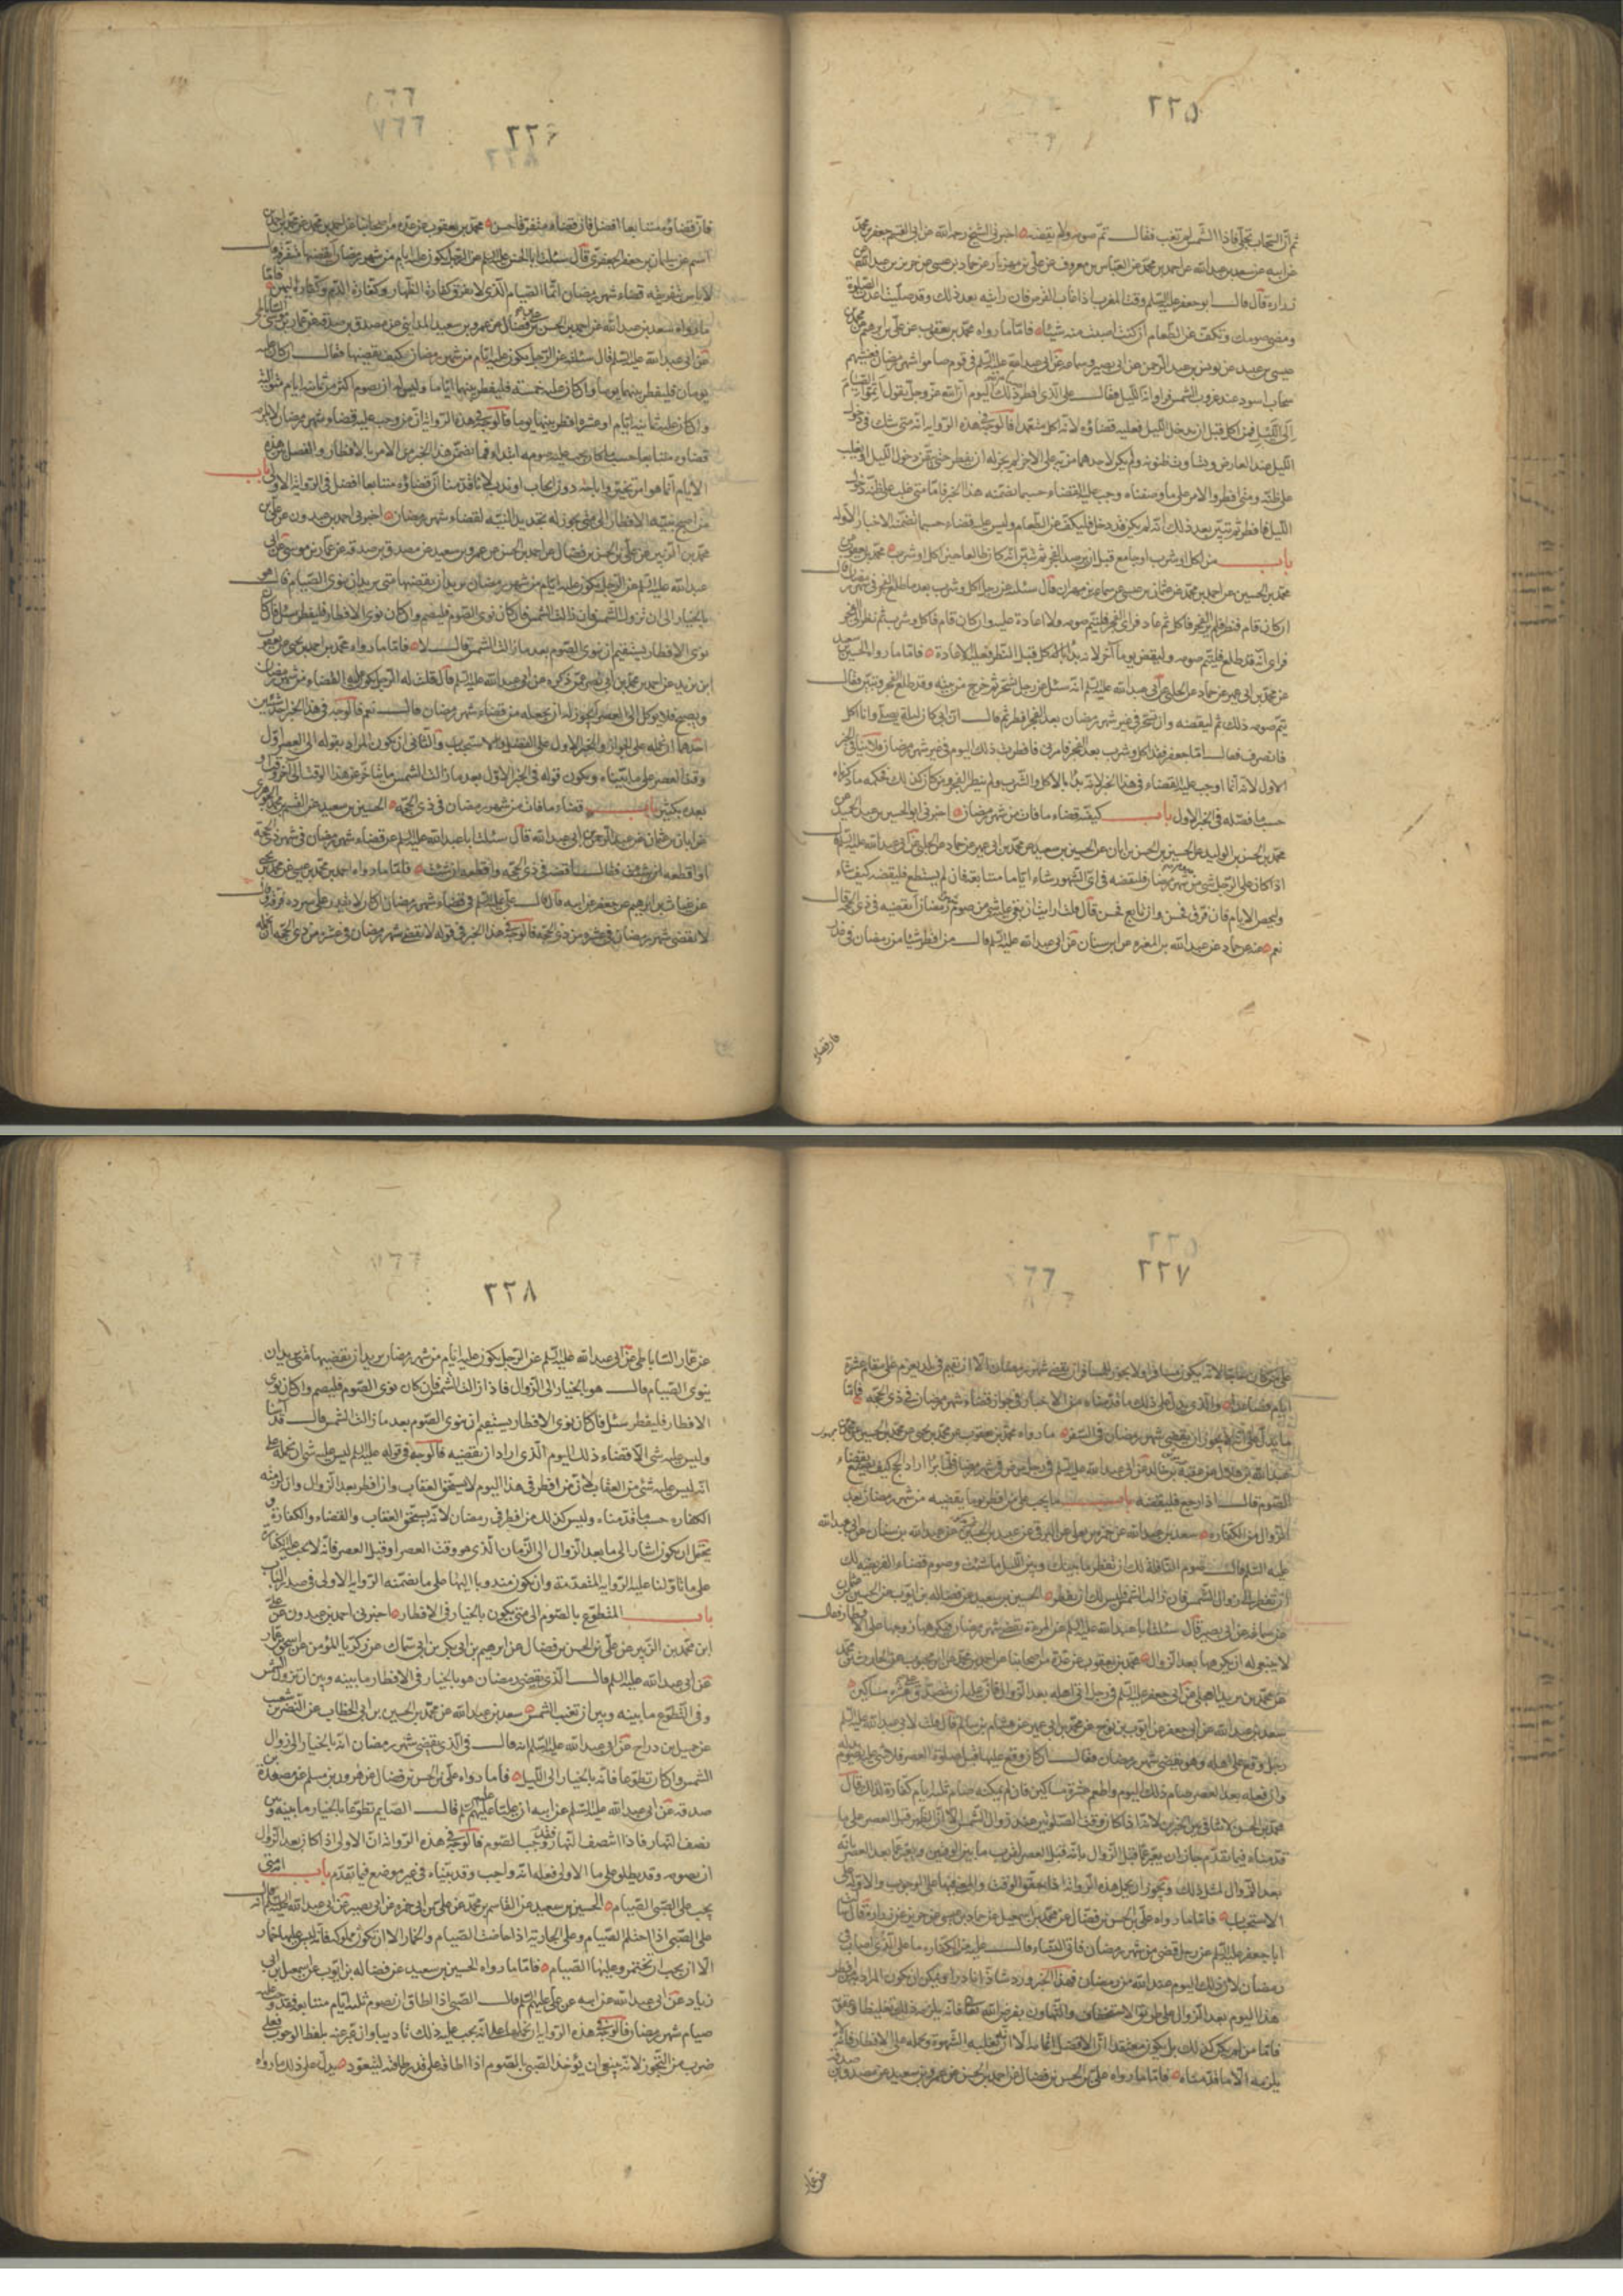 ٢٢٥
ثم ان السحاب تجلى فاذا الشمس لم تغب فقال تم صومه ولا يقضيه اخبرني الشيخ رحمه الله عن ابي القسم جعفر بن محمد
عن ابيه عن سعد بن عبدالله عن احمد بن محمد عن العباس بن معروف عن علي بن مهزيار عن حماد بن عيسى عن حريز بن عبدالله عن
زراره قال قال ابو جعفر عليه السلم وقت المغرب اذا غاب القرص فان رايته بعد ذلك وقد صليت اعدت الصلوة
ومضى صومك وتكف عن الطعام ان كنت اصبت منه شيئا فاما ما رواه محمد بن يعقوب عن علي بن ابرهيم عن محمد بن
عيسى بن عبيد عن يونس بن عبد الرحمن عن ابي بصير وسماعه عن ابي عبدالله عليه السلم في قوم صاموا شهر رمضان فغشيهم
سحاب اسود عند غروب الشمس فراوا انه الليل فقال على الذي افطر صيام ذلك اليوم ان الله عز وجل يقول اتموا الصيام
الى الليل فمن اكل قبل ان يدخل الليل فعليه قضاؤه لانه اكل متعمدا فالوجه في هذه الروايه انه متى شك في دخول
الليل عند العارض وتساوت ظنونه ولم يكن لاحدهما مزيه على الاخر لم يجز له ان يفطر حتى يتيقن دخول الليل او يغلب
على ظنه ومتى افطر والامر على ما وصفناه وجب عليه القضاء حسبما تضمنه هذا الخبر فاما متى غلب على ظنه دخول
الليل فافطر ثم تبين بعد ذلك انه لم يكن قد دخل فليكف عن الطعام وليس عليه قضاء حسبما تضمنه الاخبار الاوله
باب من اكل او شرب او جامع قبل ان يرصد الفجر ثم تبين انه كان طالعا حين اكل او شرب محمد بن يعقوب عن
محمد بن الحسين عن احمد بن محمد عن عثمان بن عيسى عن سماعه بن مهران قال سئلته عن رجل اكل وشرب بعد ما طلع الفجر في شهر رمضان قال
ان كان قام فنظر فلم ير الفجر فاكل ثم عاد فراى الفجر فليتم صومه ولا اعادة عليه وان كان قام فاكل وشرب ثم نظر الى الفجر
فراى انه قد طلع فليتم صومه وليقض يوما آخر لانه بدا بالاكل قبل النظر فعليه الاعادة فاما ما رواه الحسين بن سعيد
عن محمد بن ابي عمير عن حماد عن الحلبي عن ابي عبدالله عليه السلم انه سئل عن رجل تسحر ثم خرج من بيته وقد طلع الفجر وتبين فقال
يتم صومه ذلك ثم ليقضه وان تسحر في غير شهر رمضان بعد الفجر افطر ثم قال ان ابي كان ليلة يصلى وانا آكل
فانصرف فقال اما جعفر فقد اكل وشرب بعد الفجر فامرني فافطرت ذلك اليوم في غير شهر رمضان فلا ينافي الخبر
الاول لانه انما اوجب عليه القضاء في هذا الخبر لانه بدا بالاكل والشرب ولم ينظر الفجر ومن كان كذلك فحكمه ما ذكرناه
حسبما فصله في الخبر الاول باب كيفية قضاء ما فات من شهر رمضان اخبرني ابو الحسين بن عبد الحميد عن
محمد بن الحسن بن الوليد عن الحسين بن الحسن بن ابان عن الحسين بن سعيد عن محمد بن ابي عمير عن حماد عن الحلبي عن ابي عبدالله عليه السلم قال
اذا كان على الرجل شئ من صوم شهر رمضان فليقضه في اي الشهور شاء اياما متتابعة فان لم يستطع فليقضه كيف شاء
وليحص الايام فان فرق فحسن وان تابع فحسن قال قلت ارايت ان بقي على شئ من صوم رمضان اقضيه في ذي الحجه قال
نعم عنه عن حماد عن عبدالله بن المغيره عن ابن سنان عن ابي عبدالله عليه السلم قال من افطر شيئا من رمضان في عذر
فان قضاه
٢٢٦
٢٢٨
فان قضاؤه متتابعا افضل فان قضاه متفرقا فحسن محمد بن يعقوب عن عده من اصحابنا عن احمد بن محمد عن محمد بن احمد بن
اشيم عن سليمان بن جعفر الجعفري قال سئلت ابا الحسن عليه السلم عن الرجل يكون عليه ايام من شهر رمضان ايقضيها متفرقه قال
لا باس بتفريقه قضاء شهر رمضان انما الصيام الذي لا يفرق كفارة الظهار وكفارة الدم وكفارة اليمين فاما
ما رواه سعد بن عبدالله عن احمد بن الحسن بن علي بن فضال عن عمرو بن سعيد المدائني عن مصدق بن صدقه عن عمار بن موسى الساباطي
عن ابي عبدالله عليه السلم قال سئلته عن الرجل يكون عليه ايام من شهر رمضان كيف يقضيها فقال ان كان عليه
يومان فليفطر بينهما يوما وان كان عليه خمسة فليفطر بينها اياما وليس له ان يصوم اكثر من ثمانية ايام متواليه
وان كان عليه ثمانيه ايام او عشره افطر بينهما يوما فالوجه في هذه الروايه ان من وجب عليه قضاء شهر رمضان لا يلزمه
قضاؤه متتابعا حسب ما كان يجب عليه صومه ابتداء فما تضمن هذا الخبر من الامر بالافطار والفصل بين
الايام انما هو امر تخيير واباحة دون ايجاب او ندب لانا قد بينا ان قضاؤه متتابعا افضل في الروايه الاولى باب
من اصبح بنية الافطار الى متى يجوز له تجديد النية لقضاء شهر رمضان اخبرني احمد بن عبدون عن علي بن
محمد بن الزبير عن علي بن الحسن بن فضال عن احمد بن الحسن عن عمرو بن سعيد عن مصدق بن صدقه عن عمار بن موسى عن ابي
عبدالله عليه السلم عن الرجل يكون عليه ايام من شهر رمضان يريد ان يقضيها متى يريد ان ينوى الصيام قال هو
بالخيار الى ان تزول الشمس فان زالت الشمس فان كان نوى الصوم فليصم وان كان نوى الافطار فليفطر سئل فان كان
نوى الافطار يستقيم ان ينوى الصوم بعد ما زالت الشمس قال لا فاما ما رواه محمد بن احمد بن يحيى عن يعقوب
ابن يزيد عن احمد بن محمد بن ابي نصر عمن ذكره عن ابي عبدالله عليه السلم قال قلت له الرجل يكون عليه القضاء من شهر رمضان
ويصبح فلا ياكل الى العصر ايجوز له ان يجعله من قضاء شهر رمضان قال نعم فالوجه في هذا الخبر احد شيئين
احدهما ان نحمله على الجواز والخبر الاول على الفضل والاستحباب والثاني ان يكون المراد بقوله الى العصر اول
وقت العصر على ما بيناه ويكون قوله في الخبر الاول بعد ما زالت الشمس ما تاخر عن هذا الوقت
بعده بكثير باب قضاء ما فات من شهر رمضان في ذي الحجه الحسين بن سعيد عن القسم بن محمد الجوهري
عن ابان بن عثمان عن عبد الرحمن بن ابي عبدالله قال سئلت ابا عبدالله عليه السلم عن قضاء شهر رمضان في شهر ذي الحجة
او اقطعه قال اقضه في ذي الحجه واقطعه ان شئت فاما ما رواه احمد بن محمد بن عيسى عن محمد بن يحيى
عن غياث بن ابرهيم عن جعفر عن ابيه قال قال علي عليه السلم في قضاء شهر رمضان ان كان لا يقدر على سرده فرقه وقال
لا يقضى شهر رمضان في عشر من ذي الحجه فالوجه في هذا الخبر في قوله لا يقضى شهر رمضان في عشر من ذي الحجه ان نحمله
٢٢٧
على من كان حاجا لانه يكون مسافرا ولا يجوز للمسافر ان يقضي شهر رمضان الا ان يقيم في بلد يعزم على مقام عشرة
ايام فصاعدا والذي يدل على ذلك ما قدمناه من الاخبار في جواز قضاء شهر رمضان في ذي الحجه فاما
ما يدل على انه لا يجوز ان يقضي شهر رمضان في السفر ما رواه محمد بن يعقوب عن محمد بن يحيى عن محمد بن الحسين عن محمد بن
عبدالله بن هلال عن عقبة بن خالد عن ابي عبدالله عليه السلم في رجل مرض في شهر رمضان فلما برا اراد الحج كيف يصنع بقضاء
الصوم قال اذا رجع فليقضه باب ما يجب على من افطر يوما يقضيه من شهر رمضان بعد
الزوال من الكفاره سعد بن عبدالله عن حمزه بن يعلى عن البرقي عن عبيد بن الحسين عن عبدالله بن سنان عن ابي عبدالله
عليه السلم قال صوم النافلة لك ان تفطر ما بينك وبين الليل ما شئت وصوم قضاء الفريضه لك
ان تفطر الى زوال الشمس فان زالت الشمس فليس لك ان تفطر الحسين بن سعيد عن فضاله بن ايوب عن الحسين بن عثمان
عن سماعه عن ابي بصير قال سئلت ابا عبدالله عليه السلم عن المرءة تقضى شهر رمضان فيكرهها زوجها على الافطار فقال
لا ينبغي له ان يكرهها بعد الزوال محمد بن يعقوب عن عدة من اصحابنا عن احمد بن محمد عن ابن محبوب عن الحارث بن محمد
عن بريد العجلي عن ابي جعفر عليه السلم في رجل اتى اهله
سعد بن عبدالله عن ابي جعفر عن ايوب بن نوح عن محمد بن ابي عمير عن هشام بن سالم قال قلت لابي عبدالله عليه السلم
رجل وقع على اهله وهو يقضي شهر رمضان فقال ان كان وقع عليها قبل صلوة العصر فلا شئ عليه يصوم يوما بدله
وان فعل بعد العصر صام ذلك اليوم واطعم عشرة مساكين فان لم يمكنه صام ثلثة ايام كفارة لذلك قال
محمد بن الحسن لا تنافي بين الخبرين لانه اذا كان وقت الصلوتين عند زوال الشمس الا ان الظهر قبل العصر على ما
قدمناه فيما تقدم جاز ان يعبر عما قبل الزوال بانه قبل العصر لقرب ما بين الوقتين ويعبر عما بعد العصر بانه
بعد الزوال لمثل ذلك ويجوز ان يحمل هذه الروايه اذا تحقق الوقت على الوجوب والاوله على
الاستحباب فاما ما رواه علي بن الحسن بن فضال عن محمد بن اسمعيل عن حماد بن عيسى عن حريز عن زرارة قال سئلت
ابا جعفر عليه السلم عن رجل قضى من شهر رمضان فاتى النساء قال عليه من الكفاره ما على الذي اصاب في
رمضان لان ذلك اليوم عند الله من رمضان فهذا الخبر ورد شاذا نادرا ويمكن ان يكون المراد به من افطر
هذا اليوم بعد الزوال على طريق الاستخفاف والتهاون بفرض الله تعالى فانه يلزمه ذلك تغليظا وعقوبة
فاما من لم يكن كذلك بل يكون معتقدا ان الافضل اتمامه الا ان تغلبه الشهوة وتحمله على الافطار فانه لا
يلزمه الا ما قدمناه فاما ما رواه علي بن الحسن بن فضال عن احمد بن الحسن عن عمرو بن سعيد عن مصدق بن صدقه
عن عمار
٢٢٨
عن عمار الساباطي عن ابي عبدالله عليه السلم عن الرجل يكون عليه ايام من شهر رمضان يريد ان يقضيها متى يريد ان
ينوى الصيام قال هو بالخيار الى الزوال فاذا زالت الشمس فان كان نوى الصوم فليصم وان كان نوى
الافطار فليفطر سئل فان كان نوى الافطار يستقيم ان ينوى الصوم بعد ما زالت الشمس قال
وليس عليه شئ الا قضاء ذلك اليوم الذي اراد ان يقضيه فالوجه في قوله عليه السلم ليس عليه شئ ان نحمله على
انه ليس عليه شئ من العقاب لان من افطر في هذا اليوم لا يستحق العقاب وان افطر بعد الزوال وان لزمته
الكفاره حسب ما قدمناه وليس كذلك من افطر في رمضان لانه يستحق العقاب والقضاء والكفارة
يحتمل ان يكون اشار الى ما بعد الزوال الى الزمان الذي هو وقت العصر او قبل العصر فانه لا يجب عليه الكفارة
على ما تاولنا عليه الروايه المتقدمة وان يكون مندوبا اليها على ما تضمنته الروايه الاولى في صدر الباب
باب المتطوع بالصوم الى متى يكون بالخيار في الافطار اخبرني احمد بن عبدون عن علي
ابن محمد بن الزبير عن علي بن الحسن بن فضال عن ابرهيم بن ابي بكر بن ابي سماك عن زكريا المؤمن عن اسحق بن عمار
عن ابي عبدالله عليه السلم قال الذي يقضي رمضان هو بالخيار في الافطار ما بينه وبين ان تزول الشمس
وفي التطوع ما بينه وبين ان تغيب الشمس سعد بن عبدالله عن محمد بن الحسين بن ابي الخطاب عن النضر بن شعيب
عن جميل بن دراج عن ابي عبدالله عليه السلم انه قال في الذي يقضي شهر رمضان انه بالخيار الى زوال
الشمس وان كان تطوعا فانه بالخيار الى الليل فاما ما رواه علي بن الحسن بن فضال عن هرون بن مسلم عن مسعدة بن
صدقة عن ابي عبدالله عليه السلم عن ابيه ان عليا عليه السلم قال الصائم تطوعا بالخيار ما بينه وبين
نصف النهار فاذا انتصف النهار فقد وجب الصوم فالوجه في هذه الروايه ان الاولى اذا كان بعد الزوال
ان يصومه وقد يطلق على ما الاولى فعله انه واجب وقد بيناه في غير موضع فيما تقدم باب متى
يجب على الصبي الصيام الحسين بن سعيد عن القاسم بن محمد عن علي بن ابي حمزه عن ابي بصير عن ابي عبدالله عليه السلم انه قال
على الصبي اذا احتلم الصيام وعلى الجارية اذا حاضت الصيام والخمار الا ان تكون مملوكة فانه ليس عليها خمار
الا ان يحب ان تختمر وعليها الصيام فاما ما رواه الحسين بن سعيد عن فضاله بن ايوب عن اسمعيل بن ابي
زياد عن ابي عبدالله عن ابيه عن علي عليهم السلم قال الصبي اذا اطاق ان يصوم ثلثة ايام متتابعة فقد وجب عليه
صيام شهر رمضان فالوجه في هذه الروايه ان نحملها على انه يجب عليه ذلك تاديبا وان عبر عنه بلفظ الوجوب فعلى
ضرب من التجوز لانه ينبغي ان يؤخذ الصبي بالصوم اذا اطاقه على قدر طاقته ليتعود يدل على ذلك ما رواه